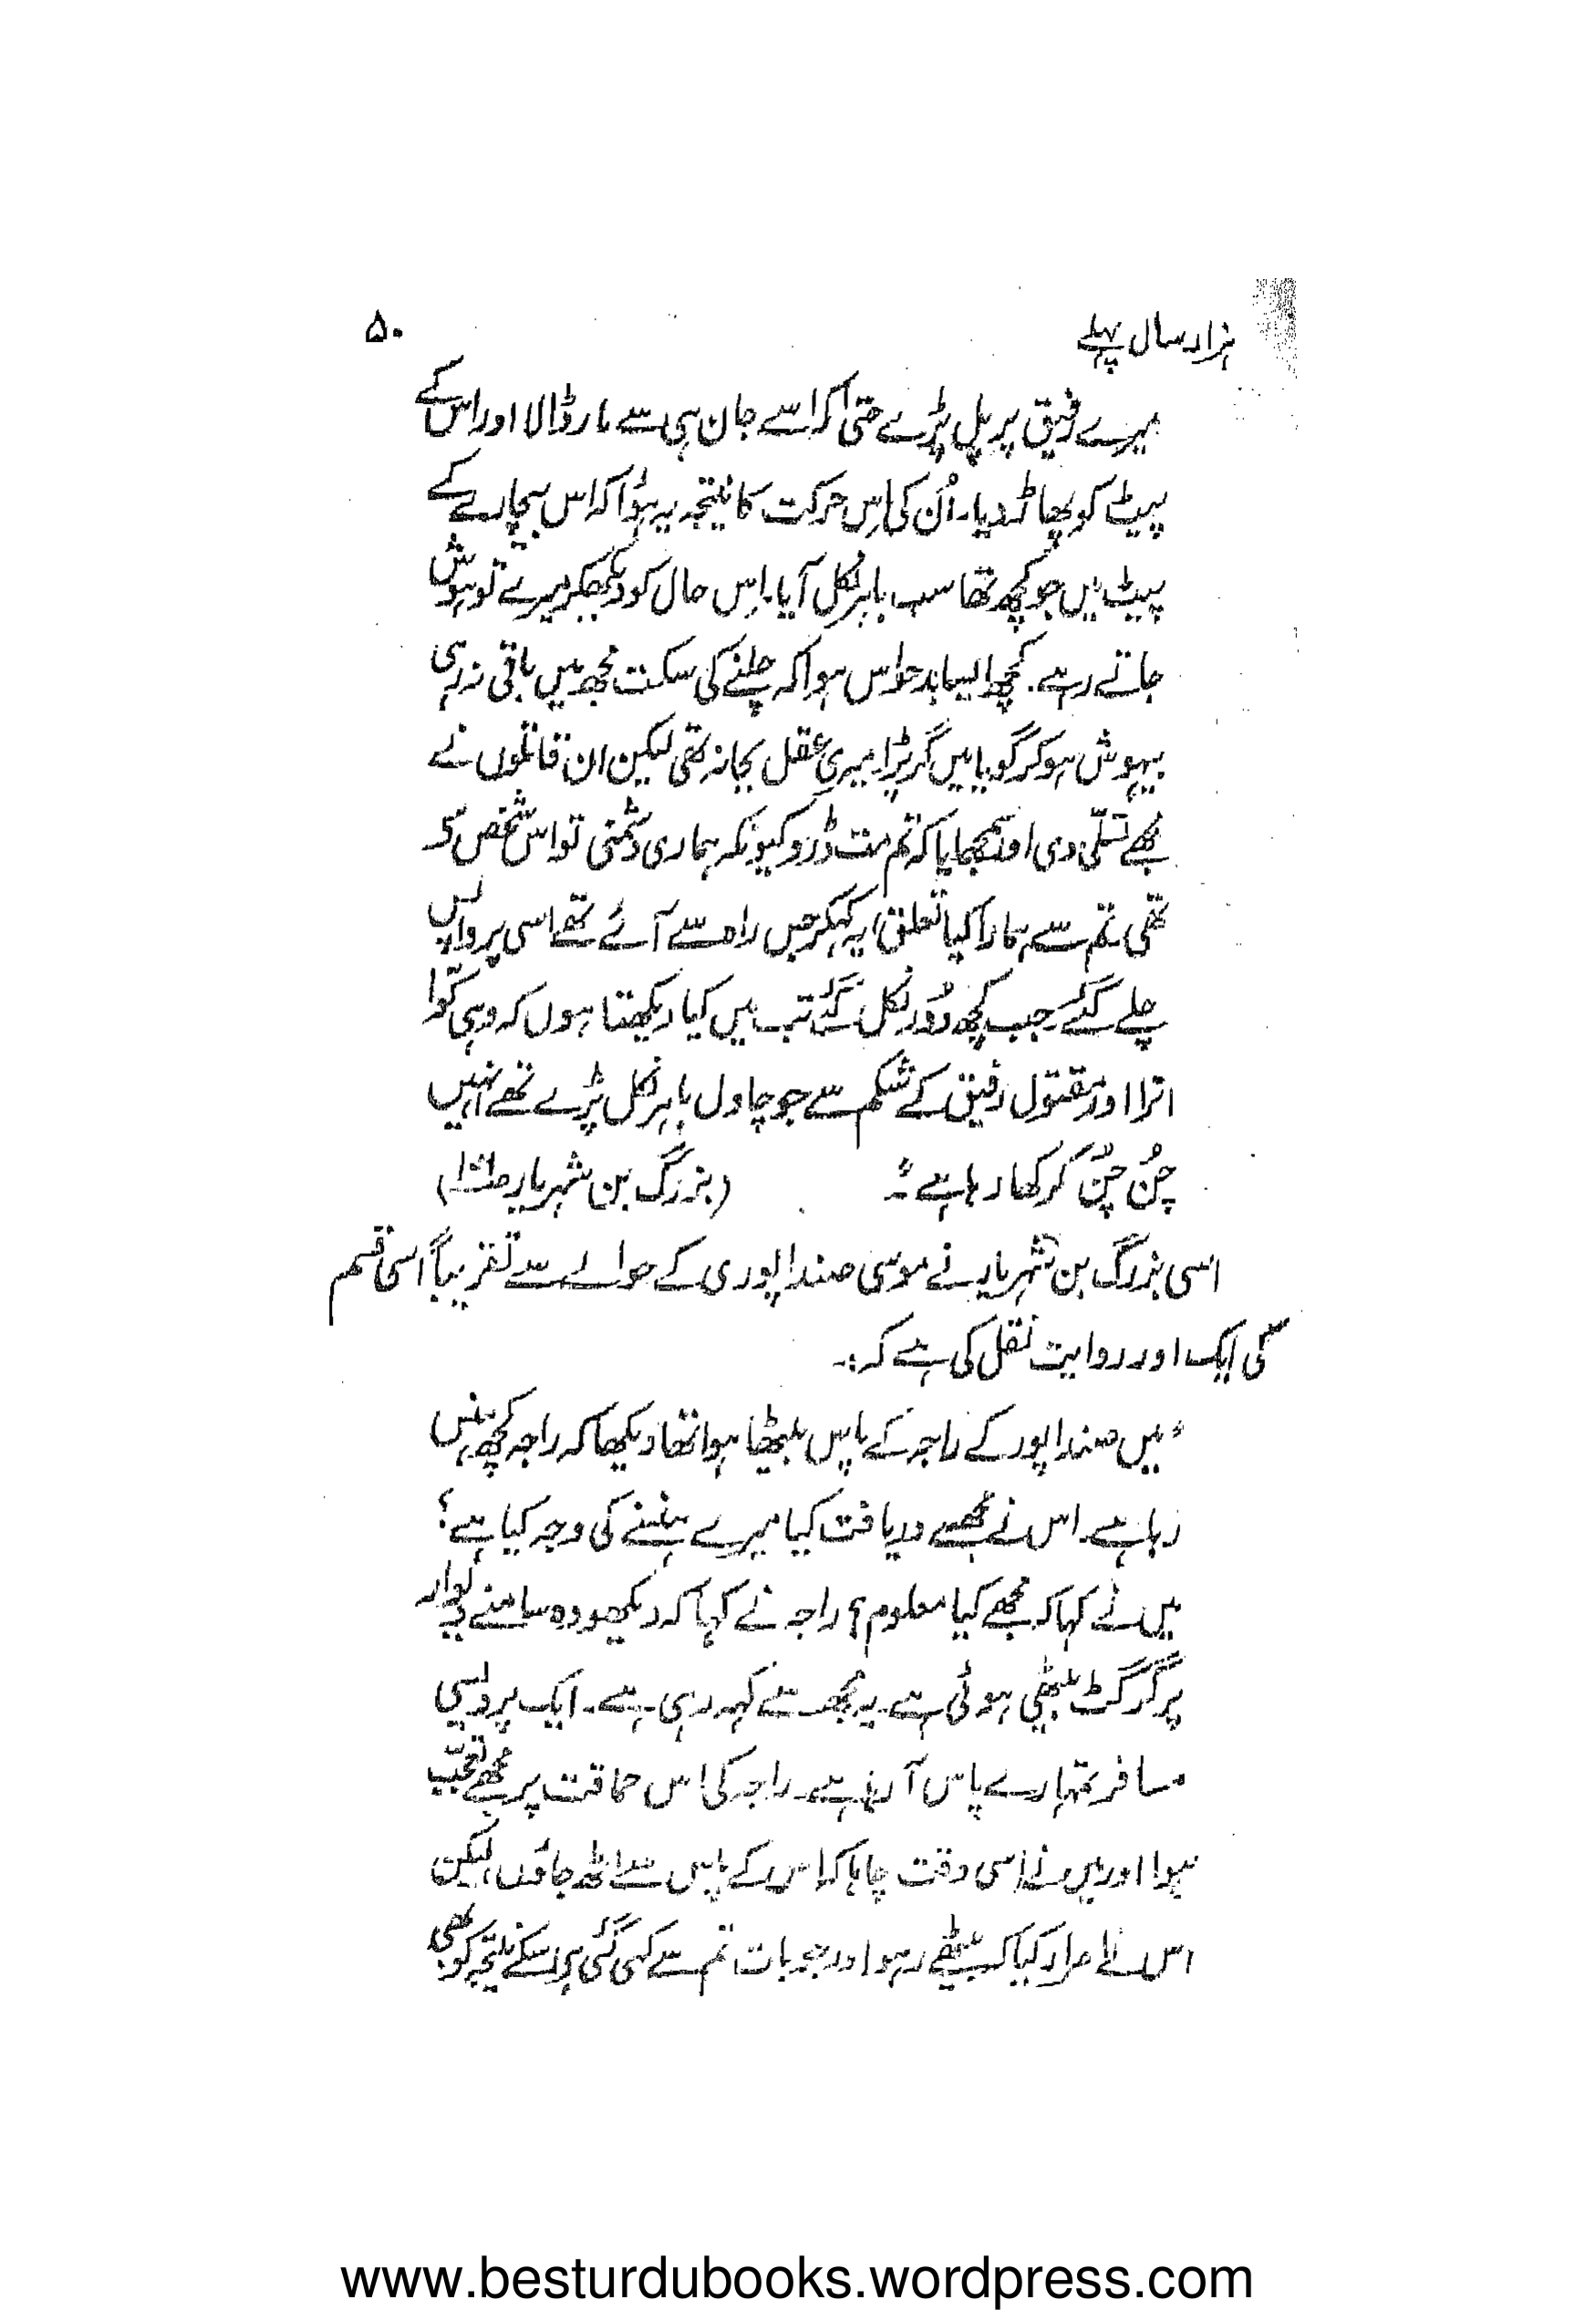 ہزار سال پہلے ۵۰
میرے رفیق پر پل پڑے حتیٰ کہ اسے جان ہی سے مار ڈالا اور اس کے
پیٹ کو پھاڑ دیا۔ اُن کی اِس حرکت کا نتیجہ یہ ہؤا کہ اس بیچارے کے
پیٹ میں جو کچھ تھا سب باہر نکل آیا۔ اِس حال کو دیکھکر میرے تو ہوش
جاتے رہے۔ کچھ ایسا بدحواس ہوا کہ چلنے کی سکت مجھ میں باقی نہ رہی
بیہوش ہو کر گویا میں گر پڑا میری عقل بجا نہ تھی لیکن ان قاتلوں نے
مجھے تسلّی دی اور سمجھایا کہ تم مت ڈرو کیونکہ ہماری دشمنی تو اس شخص سے
تھی تم سے ہمارا کیا تعلق، یہ کہکر جس راہ سے آئے تھے اسی پر واپس
چلے گئے جب کچھ دُور نکل گئے تب میں کیا دیکھتا ہوں کہ وہی کوّا
اترا اور مقتول رفیق کے شکم سے جو چاول باہر نکل پڑے تھے انہیں
چُن چُن کر کھا رہا ہے"۔ (بزرگ بن شہریار)
اسی بزرگ بن شہریار نے موسی صنداپوری کے حوالے سے تقریباً اسی قسم
کی ایک اور روایت نقل کی ہے کہ:۔
"میں صنداپور کے راجہ کے پاس بیٹھا ہوا تھا دیکھا کہ راجہ کچھ ہنس
رہا ہے۔ اس نے مجھسے دریافت کیا میرے ہنسنے کی وجہ کیا ہے؟
میں نے کہا کہ مجھے کیا معلوم؟ راجہ نے کہا کہ دیکھو وہ سامنے دیوار
پر گرگٹ بیٹھی ہوئی ہے۔ یہ مجھ سے کہہ رہی ہے۔ ایک پردیسی
مسافر تمہارے پاس آ رہا ہے۔ راجہ کی اس حماقت پر مجھے تعجّب
ہوا اور میں نے اسی وقت چاہا کہ اس کے پاس سے اٹھ جاؤں، لیکن
اس نے اصرار کیا کہ بیٹھے رہو اور جو بات تم سے کہی گئی ہے اسکے نتیجہ کو بھی
www.besturdubooks.wordpress.com